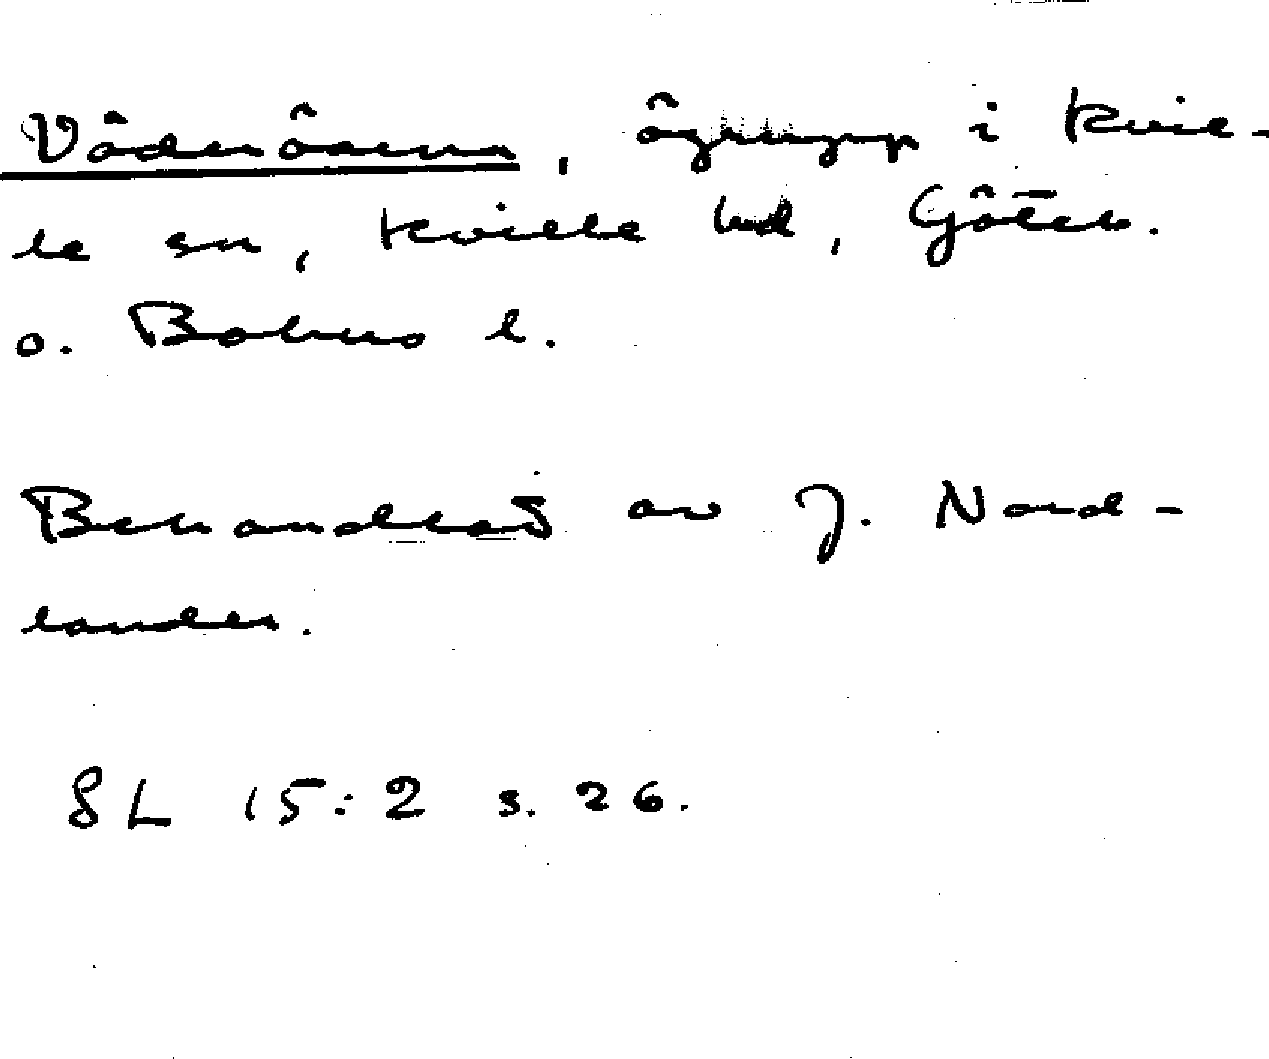 Väderöarna, ögrupp i Kvil-
le sn, Kville hd, Göteb.
o. Bohus l.
Behandlat av J. Nord-
lander.
SL 15:2 s. 26.